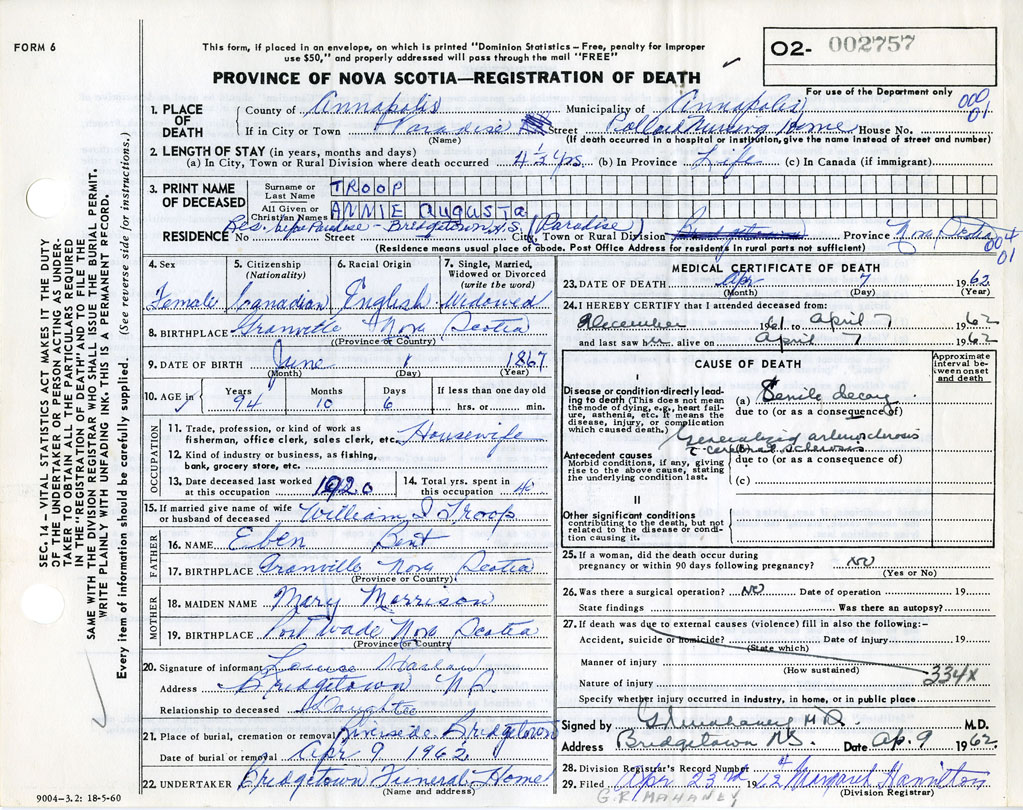 FORM 6
This form, if placed in an envelope, on which is printed "Dominion Statistics – Free, penalty for improper
use $50," and properly addressed will pass through the mail "FREE"
PROVINCE OF NOVA SCOTIA—REGISTRATION OF DEATH
O2- 002757
For use of the Department only
000
01
SEC. 14 — VITAL STATISTICS ACT MAKES IT THE DUTY
OF THE UNDERTAKER OR PERSON ACTING AS UNDER-
TAKER TO OBTAIN ALL THE PARTICULARS REQUIRED
IN THE "REGISTRATION OF DEATH" AND TO FILE THE
SAME WITH THE DIVISION REGISTRAR WHO SHALL ISSUE THE BURIAL PERMIT.
WRITE PLAINLY WITH UNFADING INK. THIS IS A PERMANENT RECORD.
Every item of information should be carefully supplied. (See reverse side for instructions.)
1. PLACE OF DEATH
County of Annapolis Municipality of Annapolis
If in City or Town Paradise Street Nursing Home House No.
(Name) (If death occurred in a hospital or institution, give the name instead of street and number)
2. LENGTH OF STAY (in years, months and days)
(a) In City, Town or Rural Division where death occurred 4 1/2 yrs. (b) In Province Life (c) In Canada (if immigrant)
3. PRINT NAME OF DECEASED
Surname or Last Name TROOP
All Given or Christian Names ANNIE AUGUSTA
RESIDENCE No. Res. before Paradise - Bridgetown N.S. Street (Paradise) City, Town or Rural Division Bridgetown Province Nova Scotia
004
01
(Residence means usual place of abode. Post Office Address for residents in rural parts not sufficient)
4. Sex 5. Citizenship (Nationality) 6. Racial Origin 7. Single, Married, Widowed or Divorced (write the word)
Female Canadian English Widowed
8. BIRTHPLACE Granville Nova Scotia
(Province or Country)
9. DATE OF BIRTH June 1 1867
(Month) (Day) (Year)
10. AGE in Years 94 Months 10 Days 6 If less than one day old hrs. or min.
OCCUPATION
11. Trade, profession, or kind of work as
fisherman, office clerk, sales clerk, etc. Housewife
12. Kind of industry or business, as fishing,
bank, grocery store, etc.
13. Date deceased last worked at this occupation 1920 14. Total yrs. spent in this occupation 40
15. If married give name of wife
or husband of deceased William I Troop
FATHER
16. NAME Eben Bent
17. BIRTHPLACE Granville Nova Scotia
(Province or Country)
MOTHER
18. MAIDEN NAME Mary Morrison
19. BIRTHPLACE Port Wade Nova Scotia
(Province or Country)
20. Signature of informant
Address Bridgetown N.S.
Relationship to deceased Daughter
21. Place of burial, cremation or removal Riverside Bridgetown
Date of burial or removal Apr 9 1962
22. UNDERTAKER Bridgetown Funeral Home
(Name and address)
9004—3.2: 18-5-60
MEDICAL CERTIFICATE OF DEATH
23. DATE OF DEATH Apr 7 1962
(Month) (Day) (Year)
24. I HEREBY CERTIFY that I attended deceased from:
December 1961 to April 7 1962
and last saw her alive on April 7 1962
CAUSE OF DEATH
Approximate interval between onset and death
I
Disease or condition directly leading to death (This does not mean
the mode of dying, e.g., heart failure, asthenia, etc. It means the
disease, injury, or complication which caused death.)
(a) Senile decay
due to (or as a consequence of)
Generalized arteriosclerosis
c cerebral sclerosis
due to (or as a consequence of)
(c)
Antecedent causes
Morbid conditions, if any, giving
rise to the above cause, stating
the underlying condition last.
II
Other significant conditions
contributing to the death, but not
related to the disease or condition causing it.
25. If a woman, did the death occur during
pregnancy or within 90 days following pregnancy? NO
(Yes or No)
26. Was there a surgical operation? NO Date of operation 19
State findings Was there an autopsy?
27. If death was due to external causes (violence) fill in also the following:-
Accident, suicide or homicide? Date of injury 19
(State which)
Manner of injury
(How sustained)
334X
Nature of injury
Specify whether injury occurred in industry, in home, or in public place
Signed by M.D. M.D.
Address Bridgetown N.S. Date Ap. 9 1962
28. Division Registrar's Record Number
29. Filed Apr 23rd 1962 Margaret Hamilton
(Division Registrar)
G.R MAHANEY